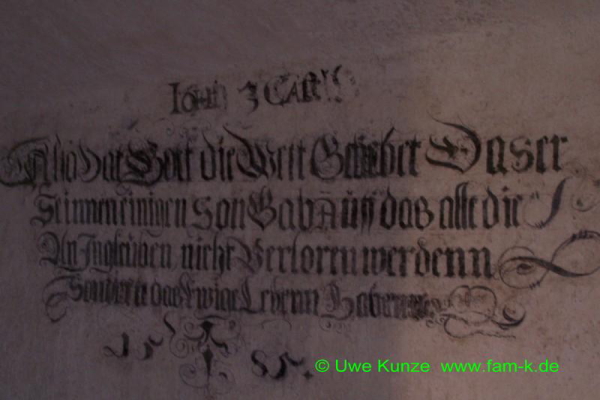 Iohan 3 Capit
Also Hat Gott die Welt Geliebet Das er
Seinnen einigen Son Gab Auff das alle die
An In gleuben nicht Verlorn werdenn
Sondern das Ewige Lebenn Haben
15 85.
© Uwe Kunze www.fam-k.de